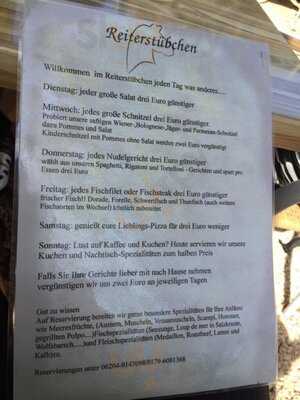 Reiterstübchen
Willkommen im Reiterstübchen jeden Tag was anderes.....
Dienstag: jeder große Salat drei Euro günstiger
Mittwoch: jedes große Schnitzel drei Euro günstiger
Probiert unsere saftigen Wiener-, Bolognese-, Jäger- und Parmesan-Schnitzel
dazu Pommes und Salat
Kinderschnitzel mit Pommes ohne Salat werden zwei Euro vergünstigt
Donnerstag: jedes Nudelgericht drei Euro günstiger
wählt aus unseren Spaghetti, Rigatoni und Tortelloni - Gerichten und spart pro
Essen drei Euro
Freitag: jedes Fischfilet oder Fischsteak drei Euro günstiger
frischer Fisch!! Dorade, Forelle, Schwertfisch und Thunfisch (auch weitere
Fischsorten im Wechsel) köstlich zubereitet
Samstag: genießt eure Lieblings-Pizza für drei Euro weniger
Sonntag: Lust auf Kaffee und Kuchen? Heute servieren wir unsere
Kuchen und Nachtisch-Spezialitäten zum halben Preis
Falls Sie Ihre Gerichte lieber mit nach Hause nehmen
vergünstigen wir um zwei Euro an jeweiligen Tagen
Gut zu wissen
Auf Reservierung bereiten wir gerne besondere Spezialitäten für Ihre Anlässe
wie Meeresfrüchte, (Austern, Muscheln, Venusmuscheln, Scampi, Hummer,
gegrillten Polpo....)Fischspezialitäten (Seezunge, Loup de mer in Salzkruste,
Wolfsbarsch.....)und Fleischspezialitäten (Medaillon, Roastbeef, Lamm und
Kalb)zu.
Reservierungen unter